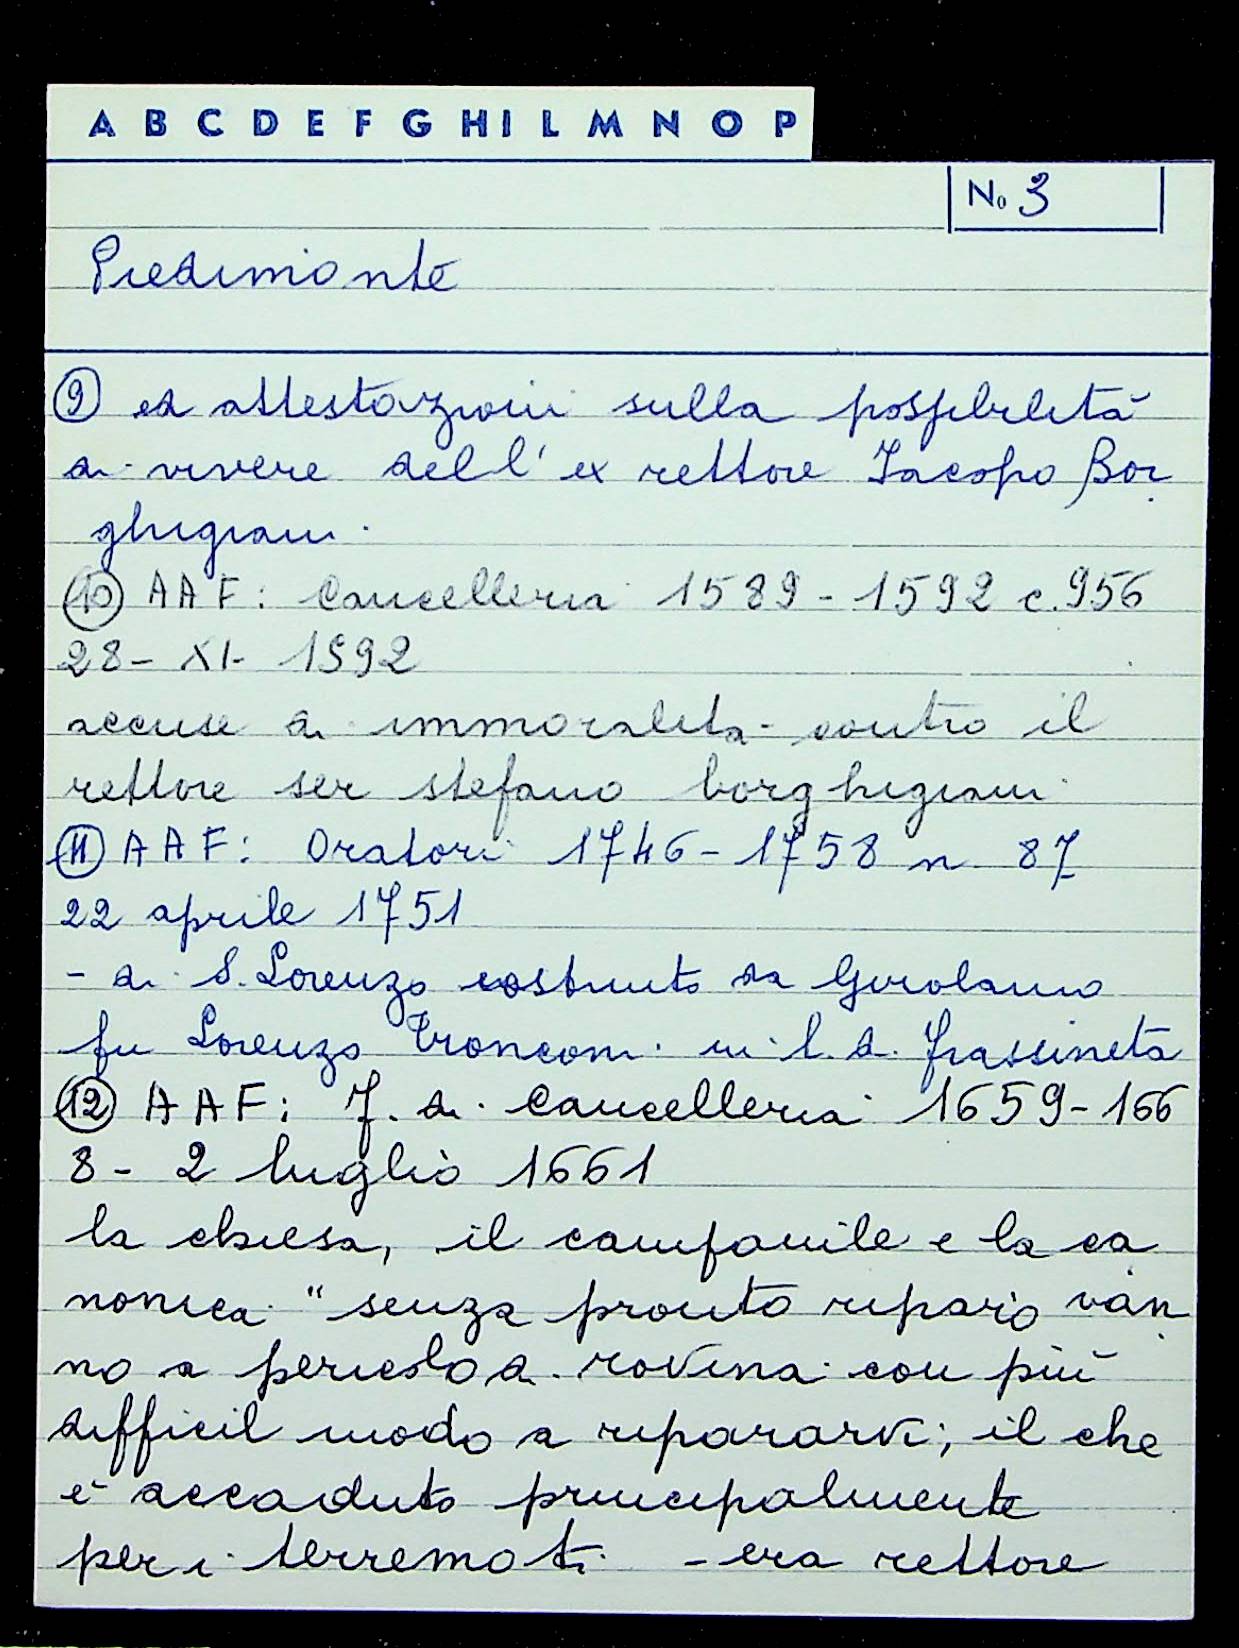 A B C D E F G H I L M N O P
No 3
Piedimonte
⑨ ed attestazioni sulla possibilità
di vivere dell'ex rettore Jacopo Bor
ghigiani.
⑩ AAF: Cancelleria 1589-1592 c.956
28-XI-1592
accuse di immoralità contro il
rettore ser stefano borghigiani
⑪ AAF: Oratori 1746-1758 n 87
22 aprile 1751
- di S. Lorenzo costruito da Girolamo
fu Lorenzo Tronconi in l.d. frassineta
⑫ AAF: f. di Cancelleria 1659-166
8-2 luglio 1661
la chiesa, il campanile e la ca
nonica "senza pronto riparo van
no a pericolo di rovina con più
difficil modo a ripararvi; il che
è accaduto principalmente
per i terremoti - era rettore